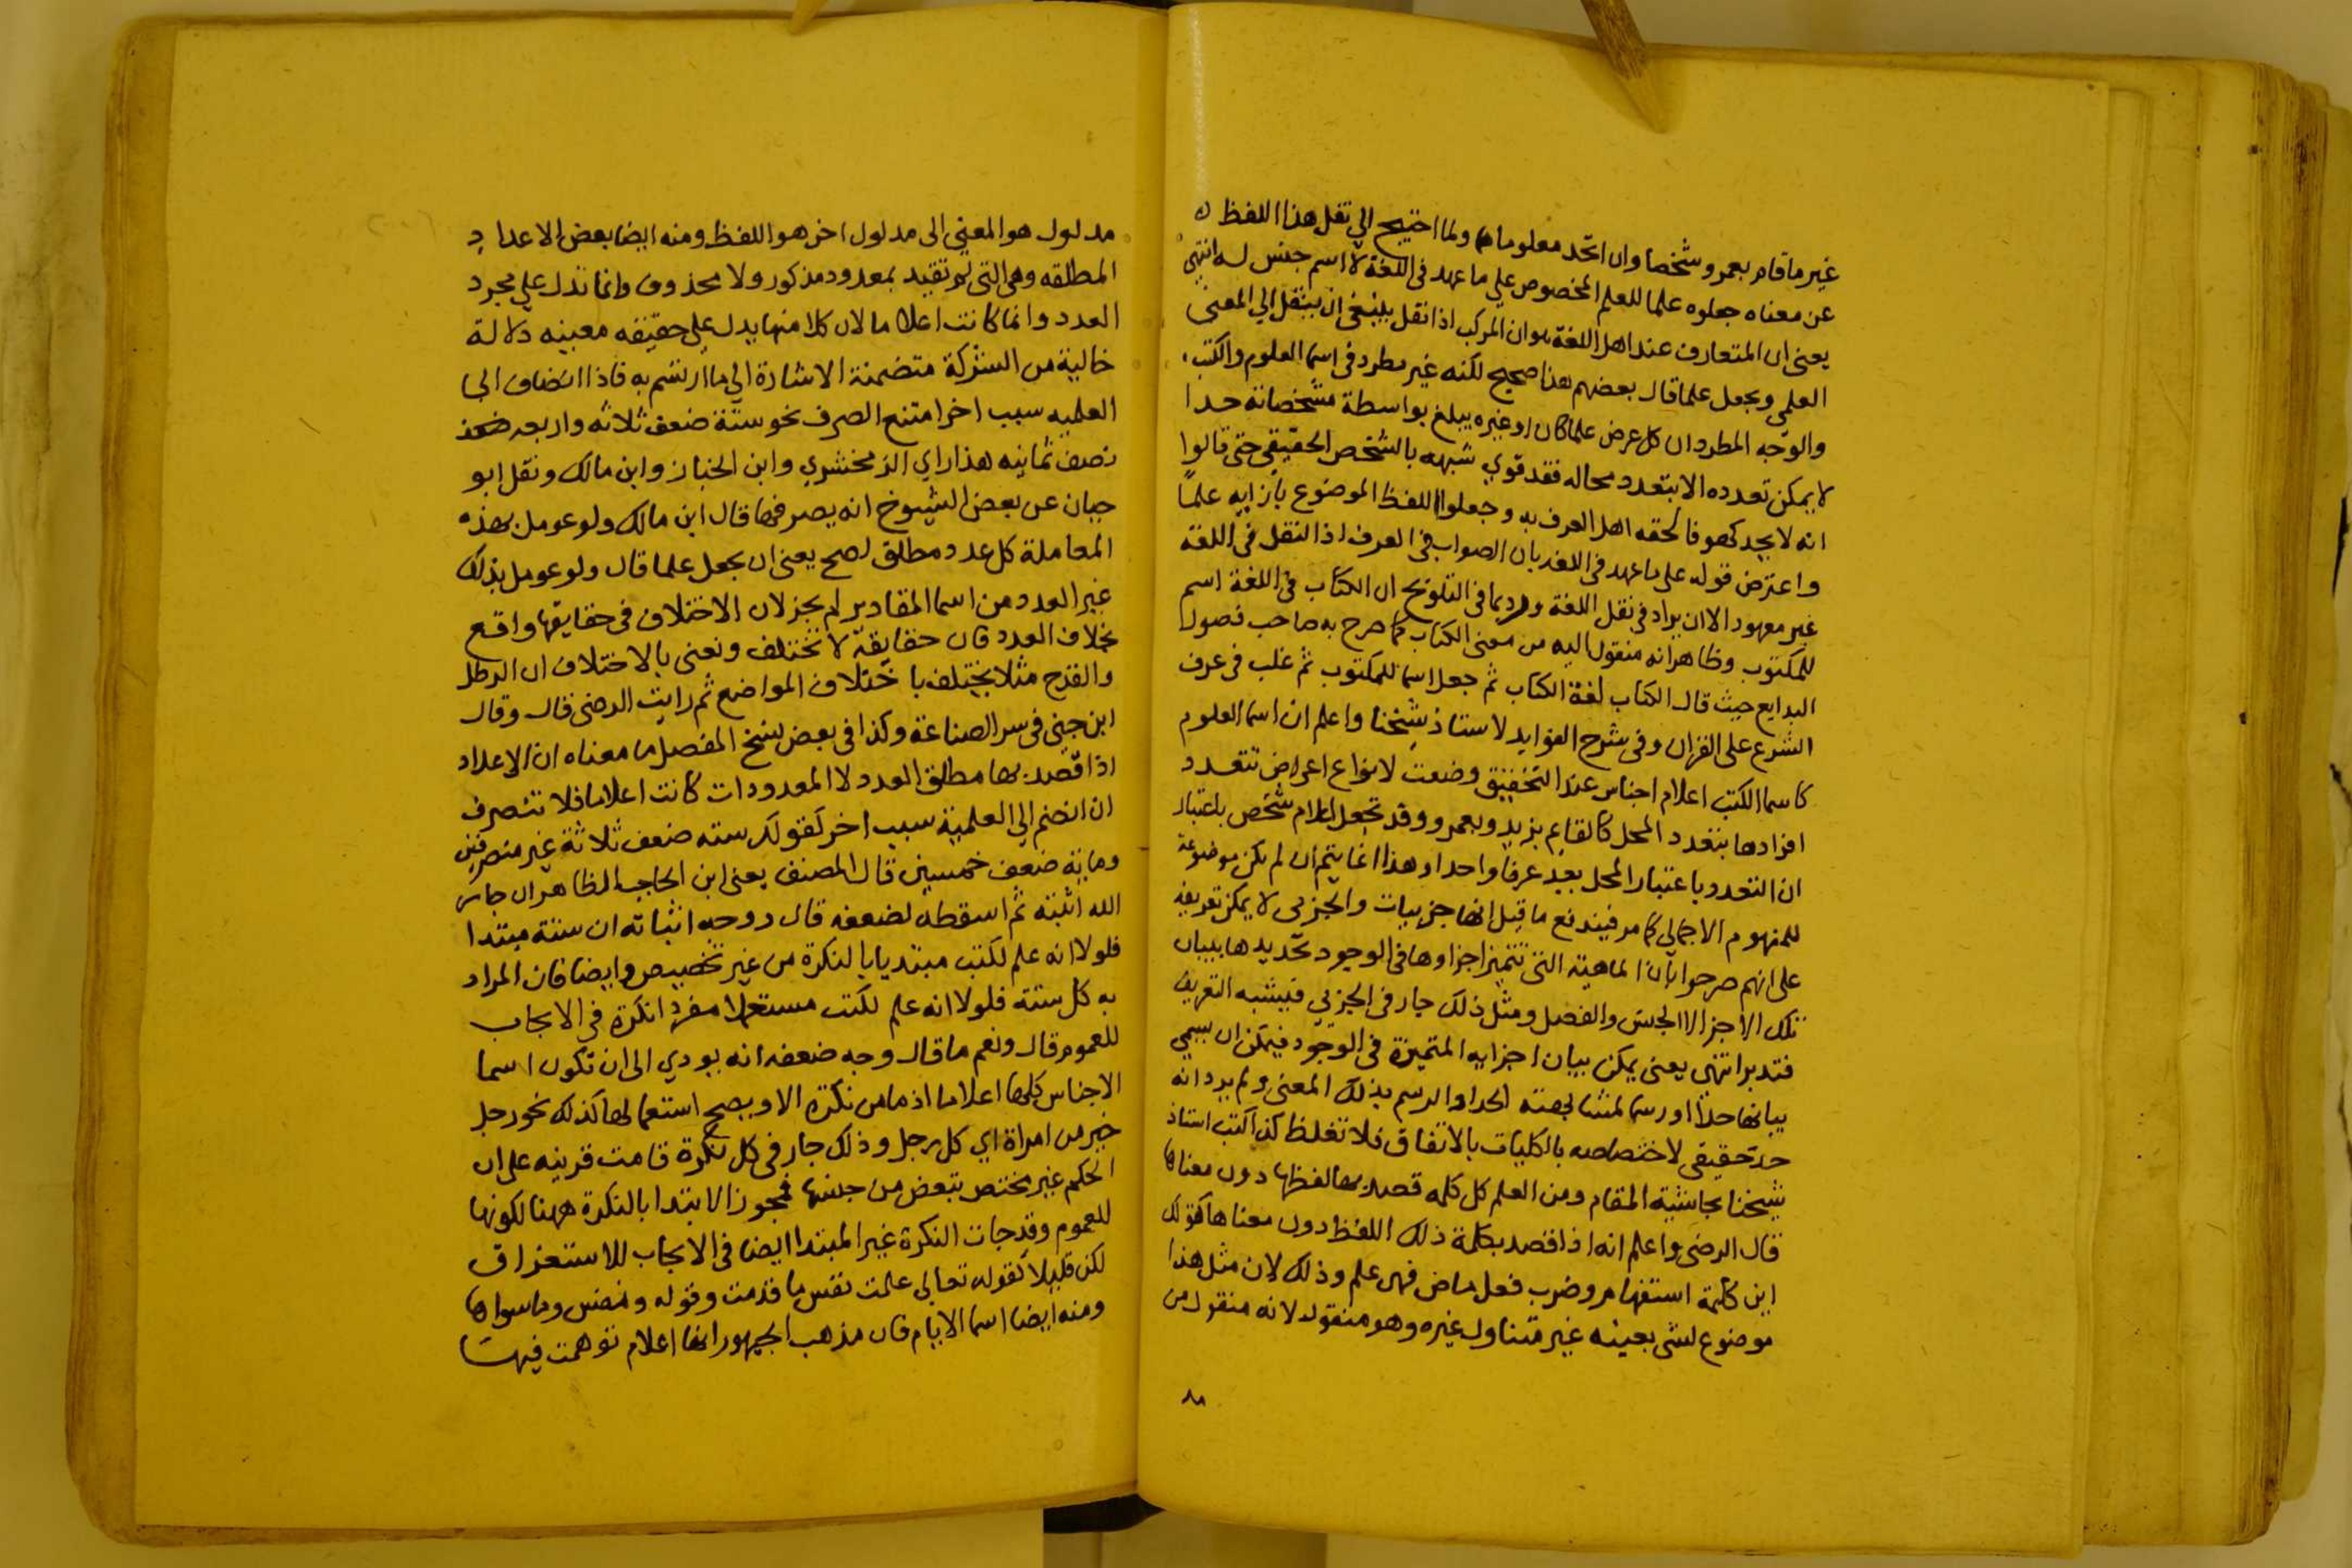 غير ما قام بعمرو شخصا وان اتحد معلوماها ولما احتيج الي نقل هذا اللفظ
عن معناه جعلوه علما للعلم المخصوص علي ما عهد في اللغة لا اسم جنس له انتهي
يعني ان المتعارف عند اهل اللغة هو ان المركب اذا نقل ينبغي ان ينقل الي المعني
العلمي ويجعل علما قال بعضهم هذا صحيح لكنه غير مطرد في اسما العلوم والكتب
والوجه المطرد ان كل عرض علما كان او غيره يبلغ بواسطة مشخصاته حدا
لا يمكن تعدده الا بتعدد محاله فقد قوي شبهه بالشخص الحقيقي حتي قالوا
انه لا يحد كهو فالحقه اهل العرف به وجعلوا اللفظ الموضوع بازايه علما
واعترض قوله علي ما عهد في اللغه بان الصواب في العرف اذ النقل في اللغة
غير معهود الا ان يراد في نقل اللغة وربما في التلويح ان الكتاب في اللغة اسم
للمكتوب وظاهر انه منقول اليه من معني الكتاب كما صرح به صاحب فصول
البدايع حيث قال الكتاب لغة الكتاب ثم جعل اسما للمكتوب ثم غلب في عرف
الشرع علي القران وفي شرح الفوايد لاستاذ شيخنا واعلم ان اسما العلوم
كاسما الكتب اعلام اجناس عند التحقيق وضعت لانواع اعراض تتعدد
افرادها بتعدد المحل كالقايم بزيد وبعمرو وقد تجعل اعلام شخص باعتبار
ان التعدد باعتبار المحل يعد عرفا واحدا وهذا انما يتم ان لم تكن موضوعة
للمفهوم الاجمالي كما مر فيندفع ما قيل انها جزييات والجزيي لا يمكن تعريفه
علي انهم صرحوا بان الماهية التي تتميز اجزاوها في الوجود تحديدها ببيان
تلك الاجزا لا الجنس والفصل ومثل ذلك جار في الجزيي فيشبه التعريف
فتدبر انتهي يعني يمكن بيان اجزايه المتميزة في الوجود فيمكن ان يسمي
بيانها حدا او رسما لمشابهته الحد او الرسم بذلك المعني ولم يرد انه
حد حقيقي لاختصاصه بالكليات بالاتفاق فلا تغلط كذا كتب استاذ
شيخنا بحاشية المقام ومن العلم كل كلمه قصد بها لفظها دون معناها
قال الرضي واعلم انه اذا قصد بكلمة ذلك اللفظ دون معناها كقولك
اين كلمة استفهام وضرب فعل ماض فهي علم وذلك لان مثل هذا
موضوع لشي بعينه غير متناول غيره وهو منقول لانه منقول من
مدلول هو المعني الي مدلول اخر هو اللفظ ومنه ايضا بعض الاعداد
المطلقه وهي التي لم تقيد بمعدود مذكور ولا محذوف وانما تدل علي مجرد
العدد وانما كانت اعلاما لان كلا منها يدل علي حقيقه معينه دلالة
خالية من الشركة متضمنة الاشارة الي ما ارتسم به فاذا انضاف الي
العلميه سبب اخر امتنع الصرف نحو ستة ضعف ثلاثه واربعه
نصف ثمانيه هذا راي الزمخشري وابن الخباز وابن مالك ونقل ابو
حيان عن بعض الشيوخ انه يصرفها قال ابن مالك ولو عومل بهذه
المعاملة كل عدد مطلق لصح يعني ان يجعل علما قال ولو عومل بذلك
غير العدد من اسما المقادير لم يجز لان الاختلاف في حقايقها واقع
بخلاف العدد فان حقايقه لا تختلف ونعني بالاختلاف ان الرطل
والقدح مثلا يختلف باختلاف المواضع ثم رايت الرضي قال وقال
ابن جني في سر الصناعة وكذا في بعض نسخ المفصل ما معناه ان الاعداد
اذا قصد بها مطلق العدد لا المعدودات كانت اعلاما فلا تنصرف
ان انضم الي العلمية سبب اخر كقولك سته ضعف ثلاثة غير منصرفين
وماية ضعف خمسين قال المصنف يعني ابن الحاجب الظاهر ان جار
الله اثبته ثم اسقطه لضعفه قال ووجه اثباته ان ستة مبتدا
فلولا انه علم لكنت مبتديا بالنكرة من غير تخصيص وايضا فان المراد
به كل ستة فلولا انه علم لكنت مستعملا مفردا نكرة في الايجاب
للعموم قال ونعم ما قال وجه ضعفه انه يودي الي ان تكون اسما
الاجناس كلها اعلاما اذ ما من نكرة الا ويصح استعمالها كذلك نحو رجل
خير من امراة اي كل رجل وذلك جار في كل نكرة قامت قرينه علي ان
الحكم غير مختص ببعض من جنسها فيجوز الابتدا بالنكرة ههنا لكونها
للعموم وقد جات النكرة غير المبتدا ايضا في الايجاب للاستغراق
لكن قليلا كقوله تعالي علمت نفس ما قدمت وقوله ونفس وما سواها
ومنه ايضا اسما الايام فان مذهب الجمهور انها اعلام توهمت فيها